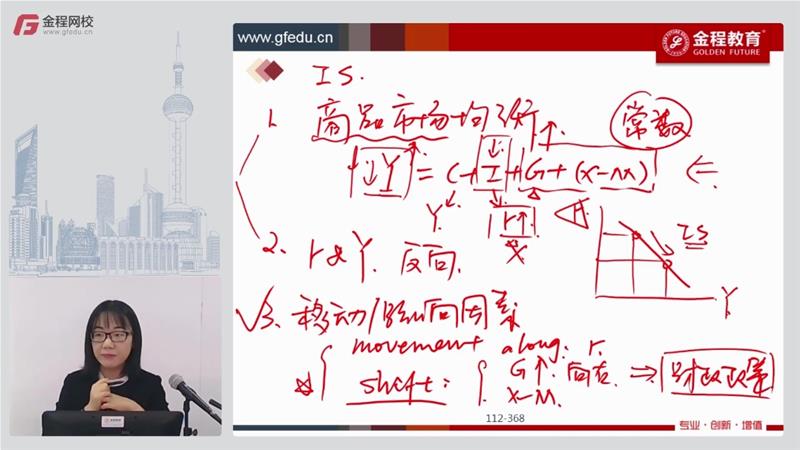 金程网校
www.gfedu.cn
www.gfedu.cn
金程教育
GOLDEN FUTURE
IS.
1. 商品市场均衡
常数
↓Y = C + I + G + (X-M)
Y
r↑
2. r & Y. 反向.
IS
Y
√3. 移动/影响因素
movement along: r.
shift: G↑. 向右. ⇒ 财政政策
X-M.
112-368
专业·创新·增值